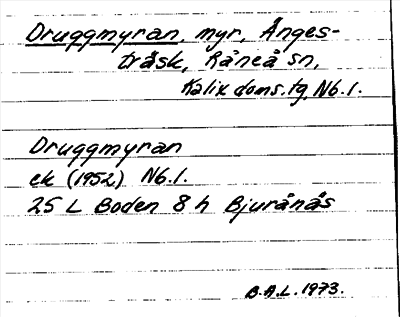 Druggmyran, myr, Änges-
träsk, Råneå sn,
Kalix doms.tg, Nb.l.
Druggmyran
ek (1952) Nb.l.
25 L Boden 8 h Bjurånäs
B.A.L. 1973.